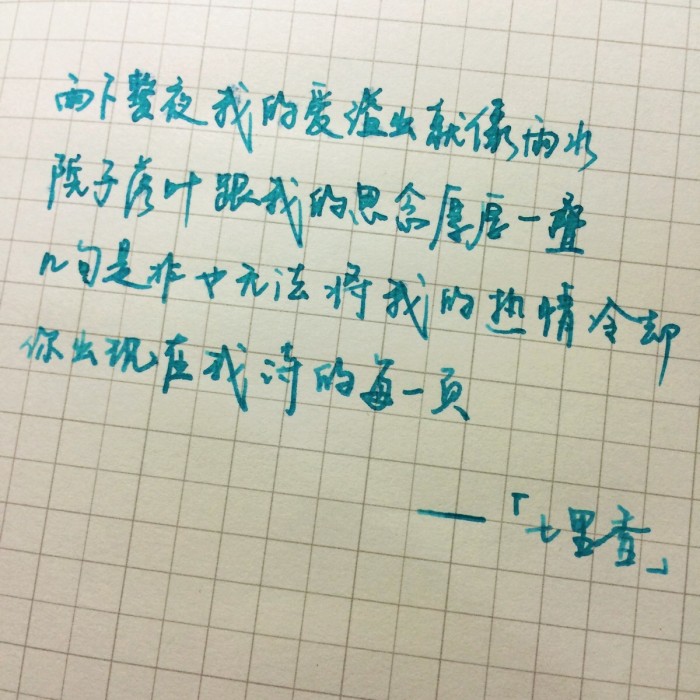 雨下整夜我的爱溢出就像雨水
院子落叶跟我的思念厚厚一叠
几句是非也无法将我的热情冷却
你出现在我诗的每一页
——「七里香」